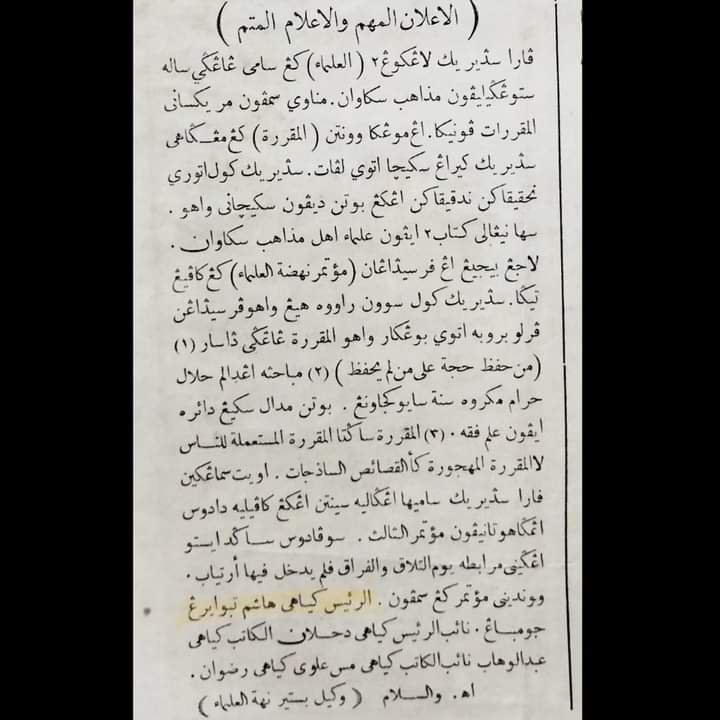 ( الاعلان المهم والاعلام المتم )
ڤارا سڎيريك لاڠكوڠ٢ (العلماء) كڠ سامى ڠاڠڮي ساله
ستوڠڮيلايڤون مذاهب سكاوان. مناوي سمڤون مريكسانى
المقررات ڤونيكا. اڠ موڠكا وونتن (المقررة) كڠ مڠڮاهى
سڎيريك كيراڠ سكيچا اتوي لڤات. سڎيريك كول اتوري
تحقيقاكن تدقيقاكن اڠكڠ بوتن ديڤون سكيچانى واهو .
سها نيڠالى كتاب٢ ايڤون علماء اهل مذاهب سكاوان .
لاجڠ بيجيڠ اڠ فرسيڎاڠان (مؤتمر نهضة العلماء) كڠ كاڤيڠ
تيڮا. سڎيريك كول سوون راووه هيڠ واهو ڤرسيڎاڠن
ڤرلو بروبه اتوي بوڠكار واهو المقررة ڠاڠڮى ڎاسار (١)
(من حفظ حجة على من لم يحفظ) (٢) مباحثه اڠدالم حلال
حرام مكروه سنة سايوكجاونڠ . بوتن مدال سكيڠ دائره
ايڤون علم فقه . (٣) المقررة ساڮتا المقررة المستعملة للناس
لا المقررة المهجورة كالقصائص الساذجات . اويت سماڠكين
فارا سڎيريك ساميها اڠڮاليه سينتن اڠكڠ كاڤيليه دادوس
اڠڮاهوتانيڤون مؤتمر الثالث . سوڤادوس ساڮد ايستو
اڠڮينى مرابطه يوم التلاق والفراق فلم يدخل فيها أرتياب .
ووندينى مؤتمر كڠ سمڤون . الرئيس كياهى هاشم تبوايرڠ
جومباڠ . نائب الرئيس كياهى دحلان الكاتب كياهى
عبدالوهاب نائب الكاتب كياهى مس علوى كياهى رضوان .
اه . والسلام ( وكيل بستير نهة العلماء )